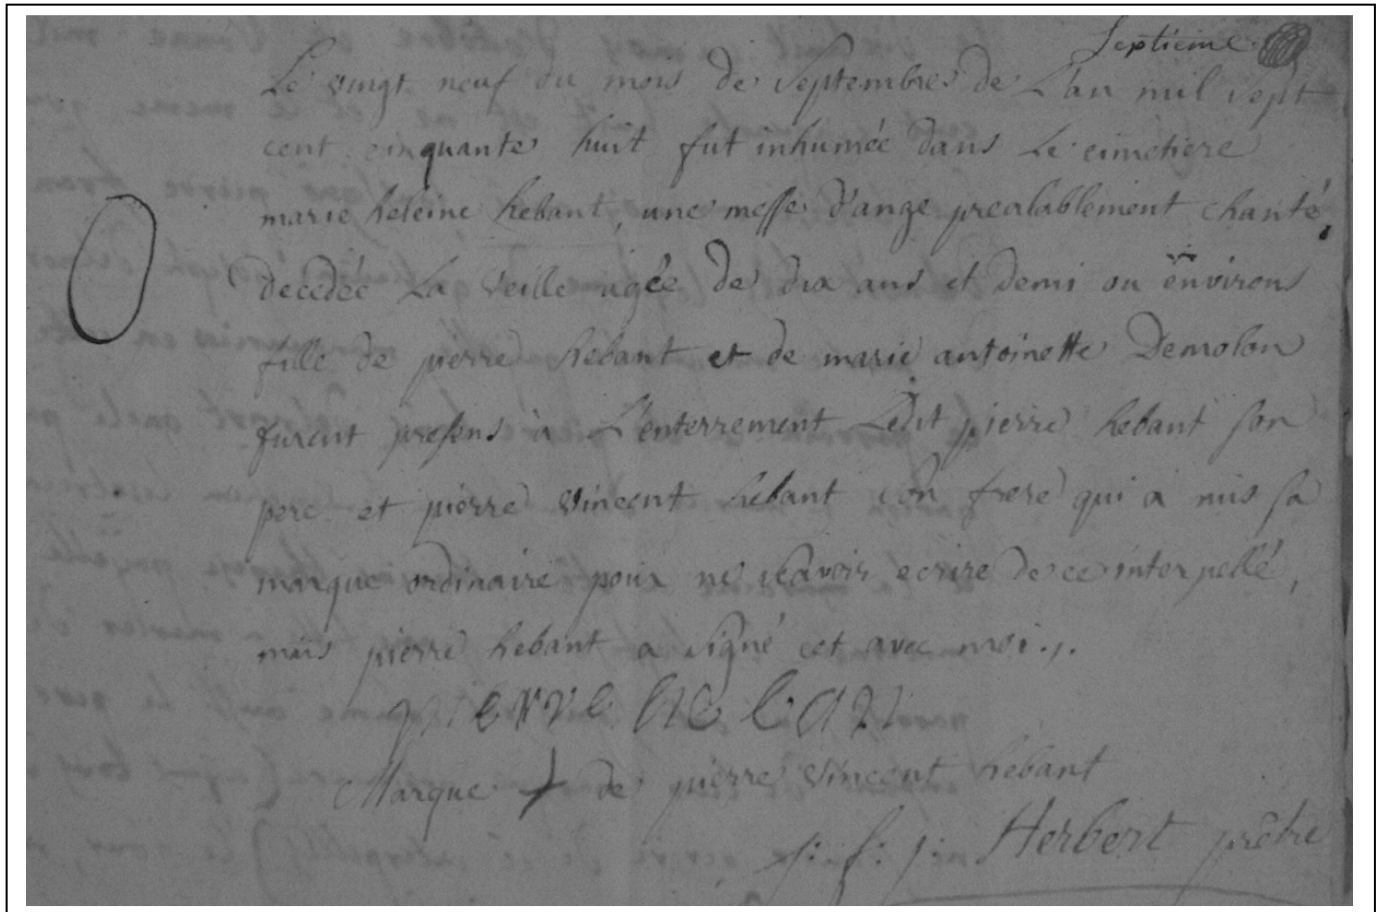 Septieme
Le vingt neuf du mois de Septembre de L'an mil sept
cent cinquante huit fut inhumée dans Le cimetiere
marie heleine hebant, une messe d'ange prealablement chanté,
decedée La veille agée de dix ans et demi ou environs
fille de pierre hebant et de marie antoinette Demolon
furent presens à L'enterrement Ledit pierre hebant son
pere et pierre vincent hebant son frere qui a mis sa
marque ordinaire pour ne scavoir ecrire de ce interpellé,
mais pierre hebant a signé cet avec moi ./.
pierre heban
Marque + de pierre vincent hebant
Herbert prêtre